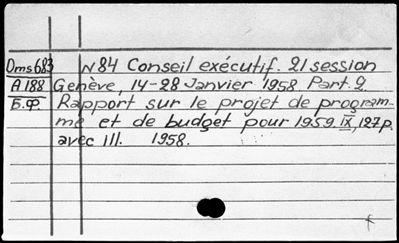 Dms683 N 84 Conseil exécutif. 21 session
A 188 Genève, 14-28 Janvier 1958. Part. 2.
Б.Ф. Rapport sur le projet de program-
me et de budget pour 1959. IX, 127 p.
avec ill. 1958.